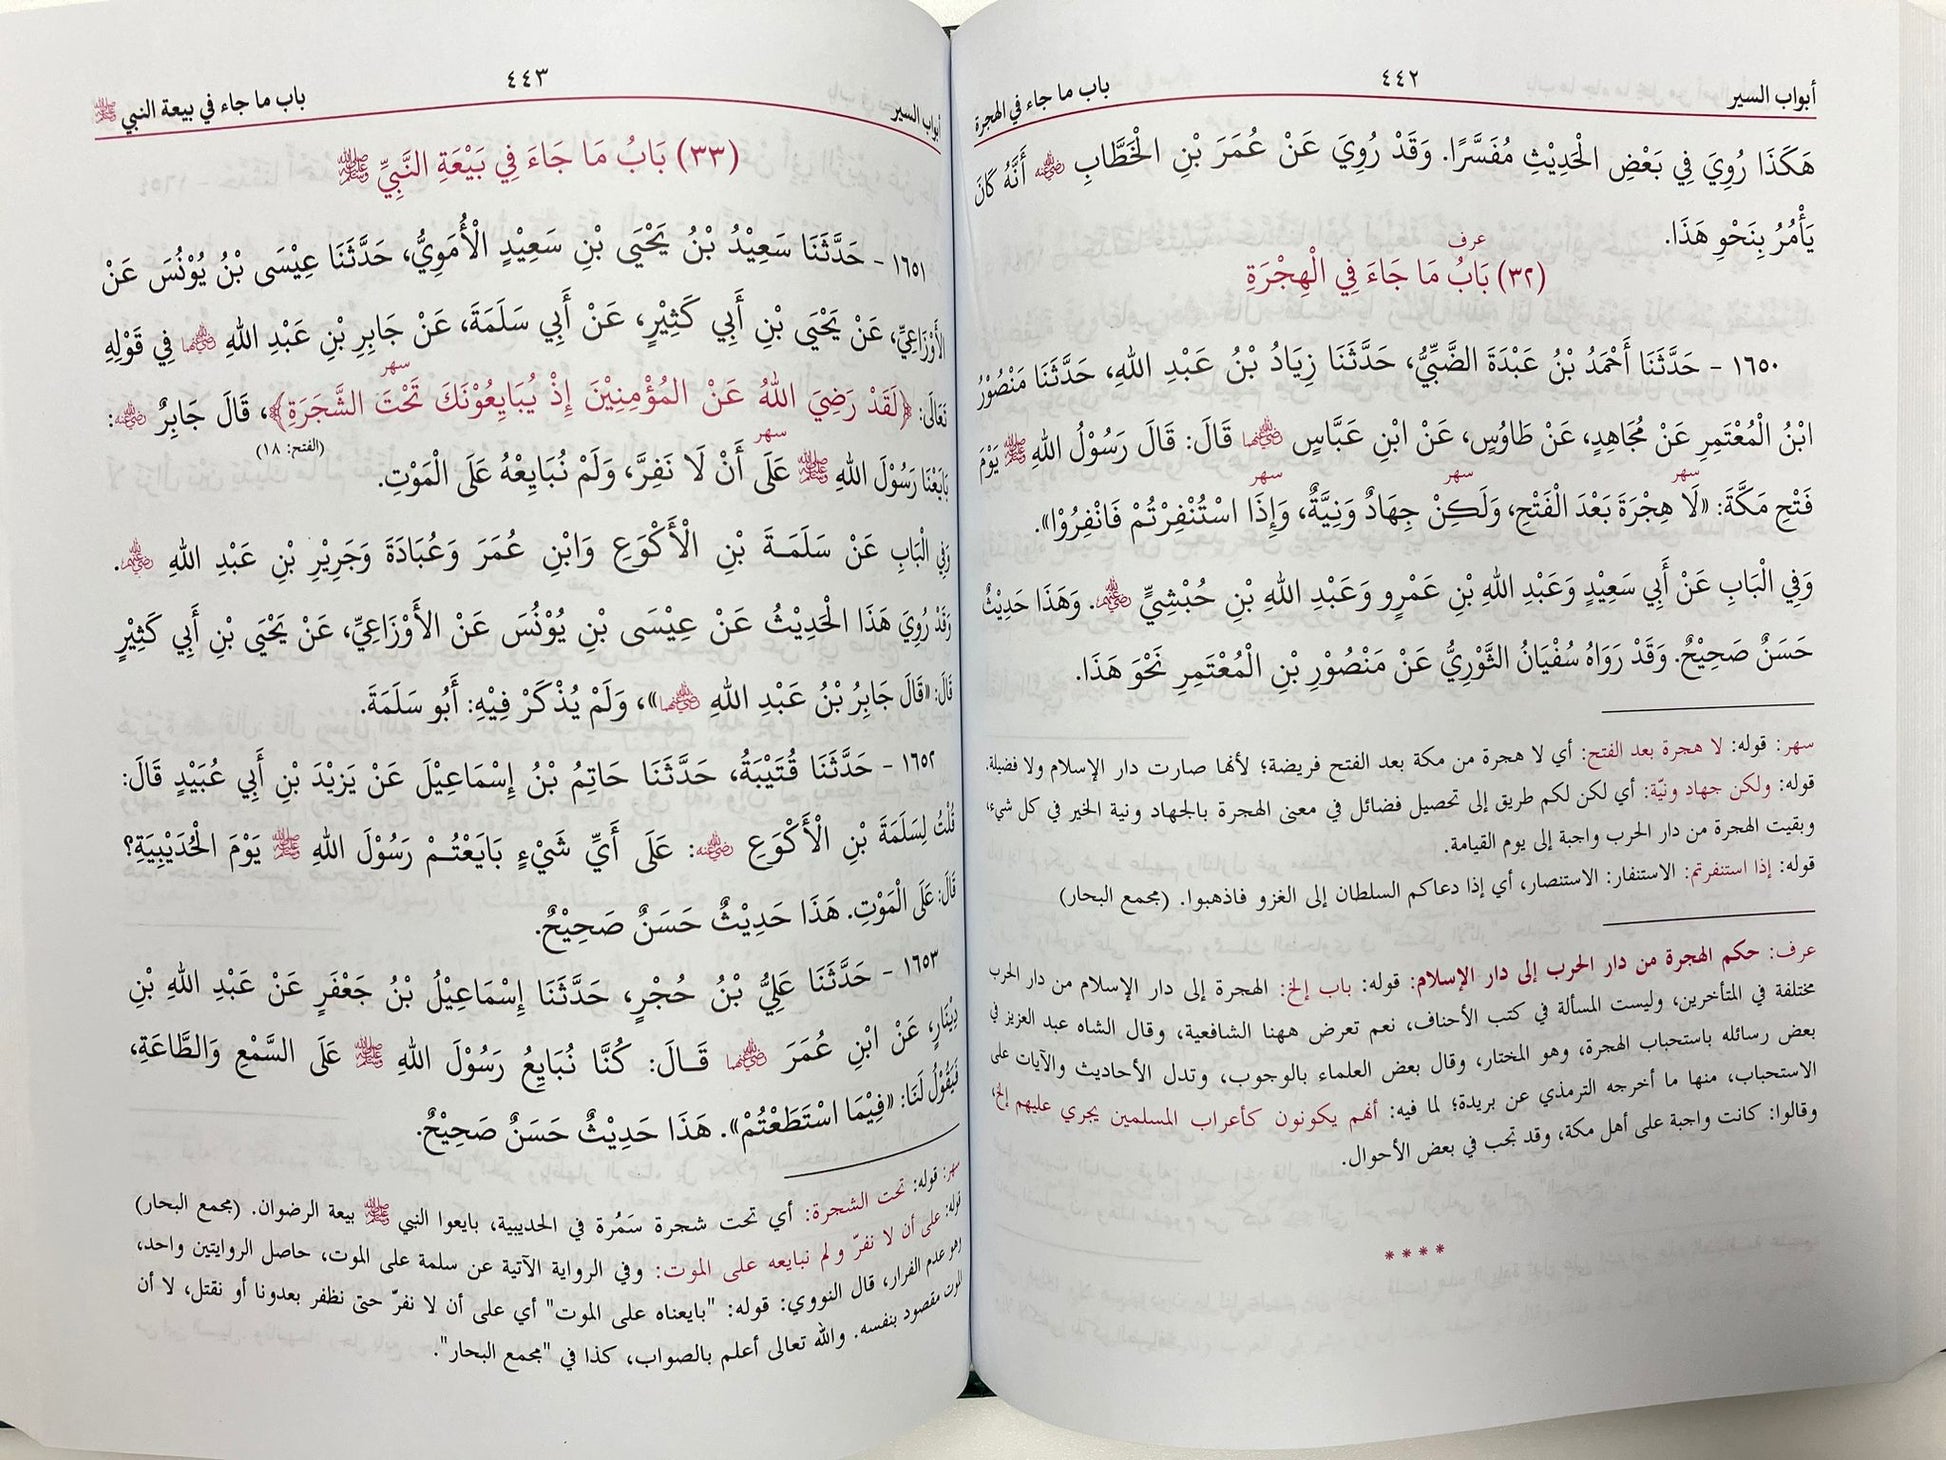 أبواب السير ٤٤٢ باب ما جاء في الهجرة
هَكَذَا رُوِيَ فِي بَعْضِ الْحَدِيْثِ مُفَسَّرًا. وَقَدْ رُوِيَ عَنْ عُمَرَ بْنِ الْخَطَّابِ ﵁ أَنَّهُ كَانَ
يَأْمُرُ بِنَحْوِ هَذَا.
عرف
(٣٢) بَابُ مَا جَاءَ فِي الْهِجْرَةِ
١٦٥٠ - حَدَّثَنَا أَحْمَدُ بْنُ عَبْدَةَ الضَّبِّيُّ، حَدَّثَنَا زِيَادُ بْنُ عَبْدِ اللهِ، حَدَّثَنَا مَنْصُوْرُ
ابْنُ الْمُعْتَمِرِ عَنْ مُجَاهِدٍ، عَنْ طَاوُسٍ، عَنِ ابْنِ عَبَّاسٍ ﵄ قَالَ: قَالَ رَسُوْلُ اللهِ ﷺ يَوْمَ
سهر سهر سهر
فَتْحِ مَكَّةَ: «لَا هِجْرَةَ بَعْدَ الْفَتْحِ، وَلَكِنْ جِهَادٌ وَنِيَّةٌ، وَإِذَا اسْتُنْفِرْتُمْ فَانْفِرُوْا».
وَفِي الْبَابِ عَنْ أَبِي سَعِيْدٍ وَعَبْدِ اللهِ بْنِ عَمْرٍو وَعَبْدِ اللهِ بْنِ حُبْشِيٍّ ﵃. وَهَذَا حَدِيْثٌ
حَسَنٌ صَحِيْحٌ. وَقَدْ رَوَاهُ سُفْيَانُ الثَّوْرِيُّ عَنْ مَنْصُوْرِ بْنِ الْمُعْتَمِرِ نَحْوَ هَذَا.
سهر: قوله: لا هجرة بعد الفتح: أي لا هجرة من مكة بعد الفتح فريضة؛ لأنها صارت دار الإسلام ولا فضيلة.
قوله: ولكن جهاد ونيّة: أي لكن لكم طريق إلى تحصيل فضائل في معنى الهجرة بالجهاد ونية الخير في كل شيء،
وبقيت الهجرة من دار الحرب واجبة إلى يوم القيامة.
قوله: إذا استنفرتم: الاستنفار: الاستنصار، أي إذا دعاكم السلطان إلى الغزو فاذهبوا. (مجمع البحار)
عرف: حكم الهجرة من دار الحرب إلى دار الإسلام: قوله: باب إلخ: الهجرة إلى دار الإسلام من دار الحرب
مختلفة في المتأخرين، وليست المسألة في كتب الأحناف، نعم تعرض ههنا الشافعية، وقال الشاه عبد العزيز في
بعض رسائله باستحباب الهجرة، وهو المختار، وقال بعض العلماء بالوجوب، وتدل الأحاديث والآيات على
الاستحباب، منها ما أخرجه الترمذي عن بريدة؛ لما فيه: أنهم يكونون كأعراب المسلمين يجري عليهم إلخ،
وقالوا: كانت واجبة على أهل مكة، وقد تجب في بعض الأحوال.
****
أبواب السير ٤٤٣ باب ما جاء في بيعة النبي ﷺ
(٣٣) بَابُ مَا جَاءَ فِي بَيْعَةِ النَّبِيِّ ﷺ
١٦٥١ - حَدَّثَنَا سَعِيْدُ بْنُ يَحْيَى بْنِ سَعِيْدٍ الْأُمَوِيُّ، حَدَّثَنَا عِيْسَى بْنُ يُوْنُسَ عَنْ
الأَوْزَاعِيِّ، عَنْ يَحْيَى بْنِ أَبِي كَثِيْرٍ، عَنْ أَبِي سَلَمَةَ، عَنْ جَابِرِ بْنِ عَبْدِ اللهِ ﵄ فِي قَوْلِهِ
سهر
تَعَالَى: ﴿لَقَدْ رَضِيَ اللهُ عَنْ الْمُؤْمِنِيْنَ إِذْ يُبَايِعُوْنَكَ تَحْتَ الشَّجَرَةِ﴾، قَالَ جَابِرٌ ﵁:
(الفتح: ١٨)
سهر
بَايَعْنَا رَسُوْلَ اللهِ ﷺ عَلَى أَنْ لَا نَفِرَّ، وَلَمْ نُبَايِعْهُ عَلَى الْمَوْتِ.
وَفِي الْبَابِ عَنْ سَلَمَةَ بْنِ الْأَكْوَعِ وَابْنِ عُمَرَ وَعُبَادَةَ وَجَرِيْرِ بْنِ عَبْدِ اللهِ ﵃.
وَقَدْ رُوِيَ هَذَا الْحَدِيْثُ عَنْ عِيْسَى بْنِ يُوْنُسَ عَنْ الأَوْزَاعِيِّ، عَنْ يَحْيَى بْنِ أَبِي كَثِيْرٍ
قَالَ: «قَالَ جَابِرُ بْنُ عَبْدِ اللهِ ﵄»، وَلَمْ يُذْكَرْ فِيْهِ: أَبُو سَلَمَةَ.
١٦٥٢ - حَدَّثَنَا قُتَيْبَةُ، حَدَّثَنَا حَاتِمُ بْنُ إِسْمَاعِيْلَ عَنْ يَزِيْدَ بْنِ أَبِي عُبَيْدٍ قَالَ:
قُلْتُ لِسَلَمَةَ بْنِ الْأَكْوَعِ ﵁: عَلَى أَيِّ شَيْءٍ بَايَعْتُمْ رَسُوْلَ اللهِ ﷺ يَوْمَ الْحُدَيْبِيَةِ؟
قَالَ: عَلَى الْمَوْتِ. هَذَا حَدِيْثٌ حَسَنٌ صَحِيْحٌ.
١٦٥٣ - حَدَّثَنَا عَلِيُّ بْنُ حُجْرٍ، حَدَّثَنَا إِسْمَاعِيْلُ بْنُ جَعْفَرٍ عَنْ عَبْدِ اللهِ بْنِ
دِيْنَارٍ، عَنْ ابْنِ عُمَرَ ﵄ قَالَ: كُنَّا نُبَايِعُ رَسُوْلَ اللهِ ﷺ عَلَى السَّمْعِ وَالطَّاعَةِ،
فَيَقُوْلُ لَنَا: «فِيْمَا اسْتَطَعْتُمْ». هَذَا حَدِيْثٌ حَسَنٌ صَحِيْحٌ.
سهر: قوله: تحت الشجرة: أي تحت شجرة سَمُرة في الحديبية، بايعوا النبي ﷺ بيعة الرضوان. (مجمع البحار)
قوله: على أن لا نفرّ و لم نبايعه على الموت: وفي الرواية الآتية عن سلمة على الموت، حاصل الروايتين واحد،
وهو عدم الفرار، قال النووي: قوله: "بايعناه على الموت" أي على أن لا نفرّ حتى نظفر بعدونا أو نقتل، لا أن
الموت مقصود بنفسه. والله تعالى أعلم بالصواب، كذا في "مجمع البحار".